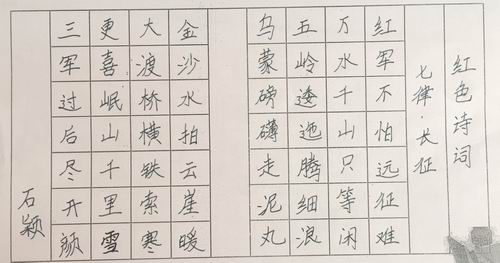 红色诗词
七律·长征
红军不怕远征难
万水千山只等闲
五岭逶迤腾细浪
乌蒙磅礴走泥丸
金沙水拍云崖暖
大渡桥横铁索寒
更喜岷山千里雪
三军过后尽开颜
石颖